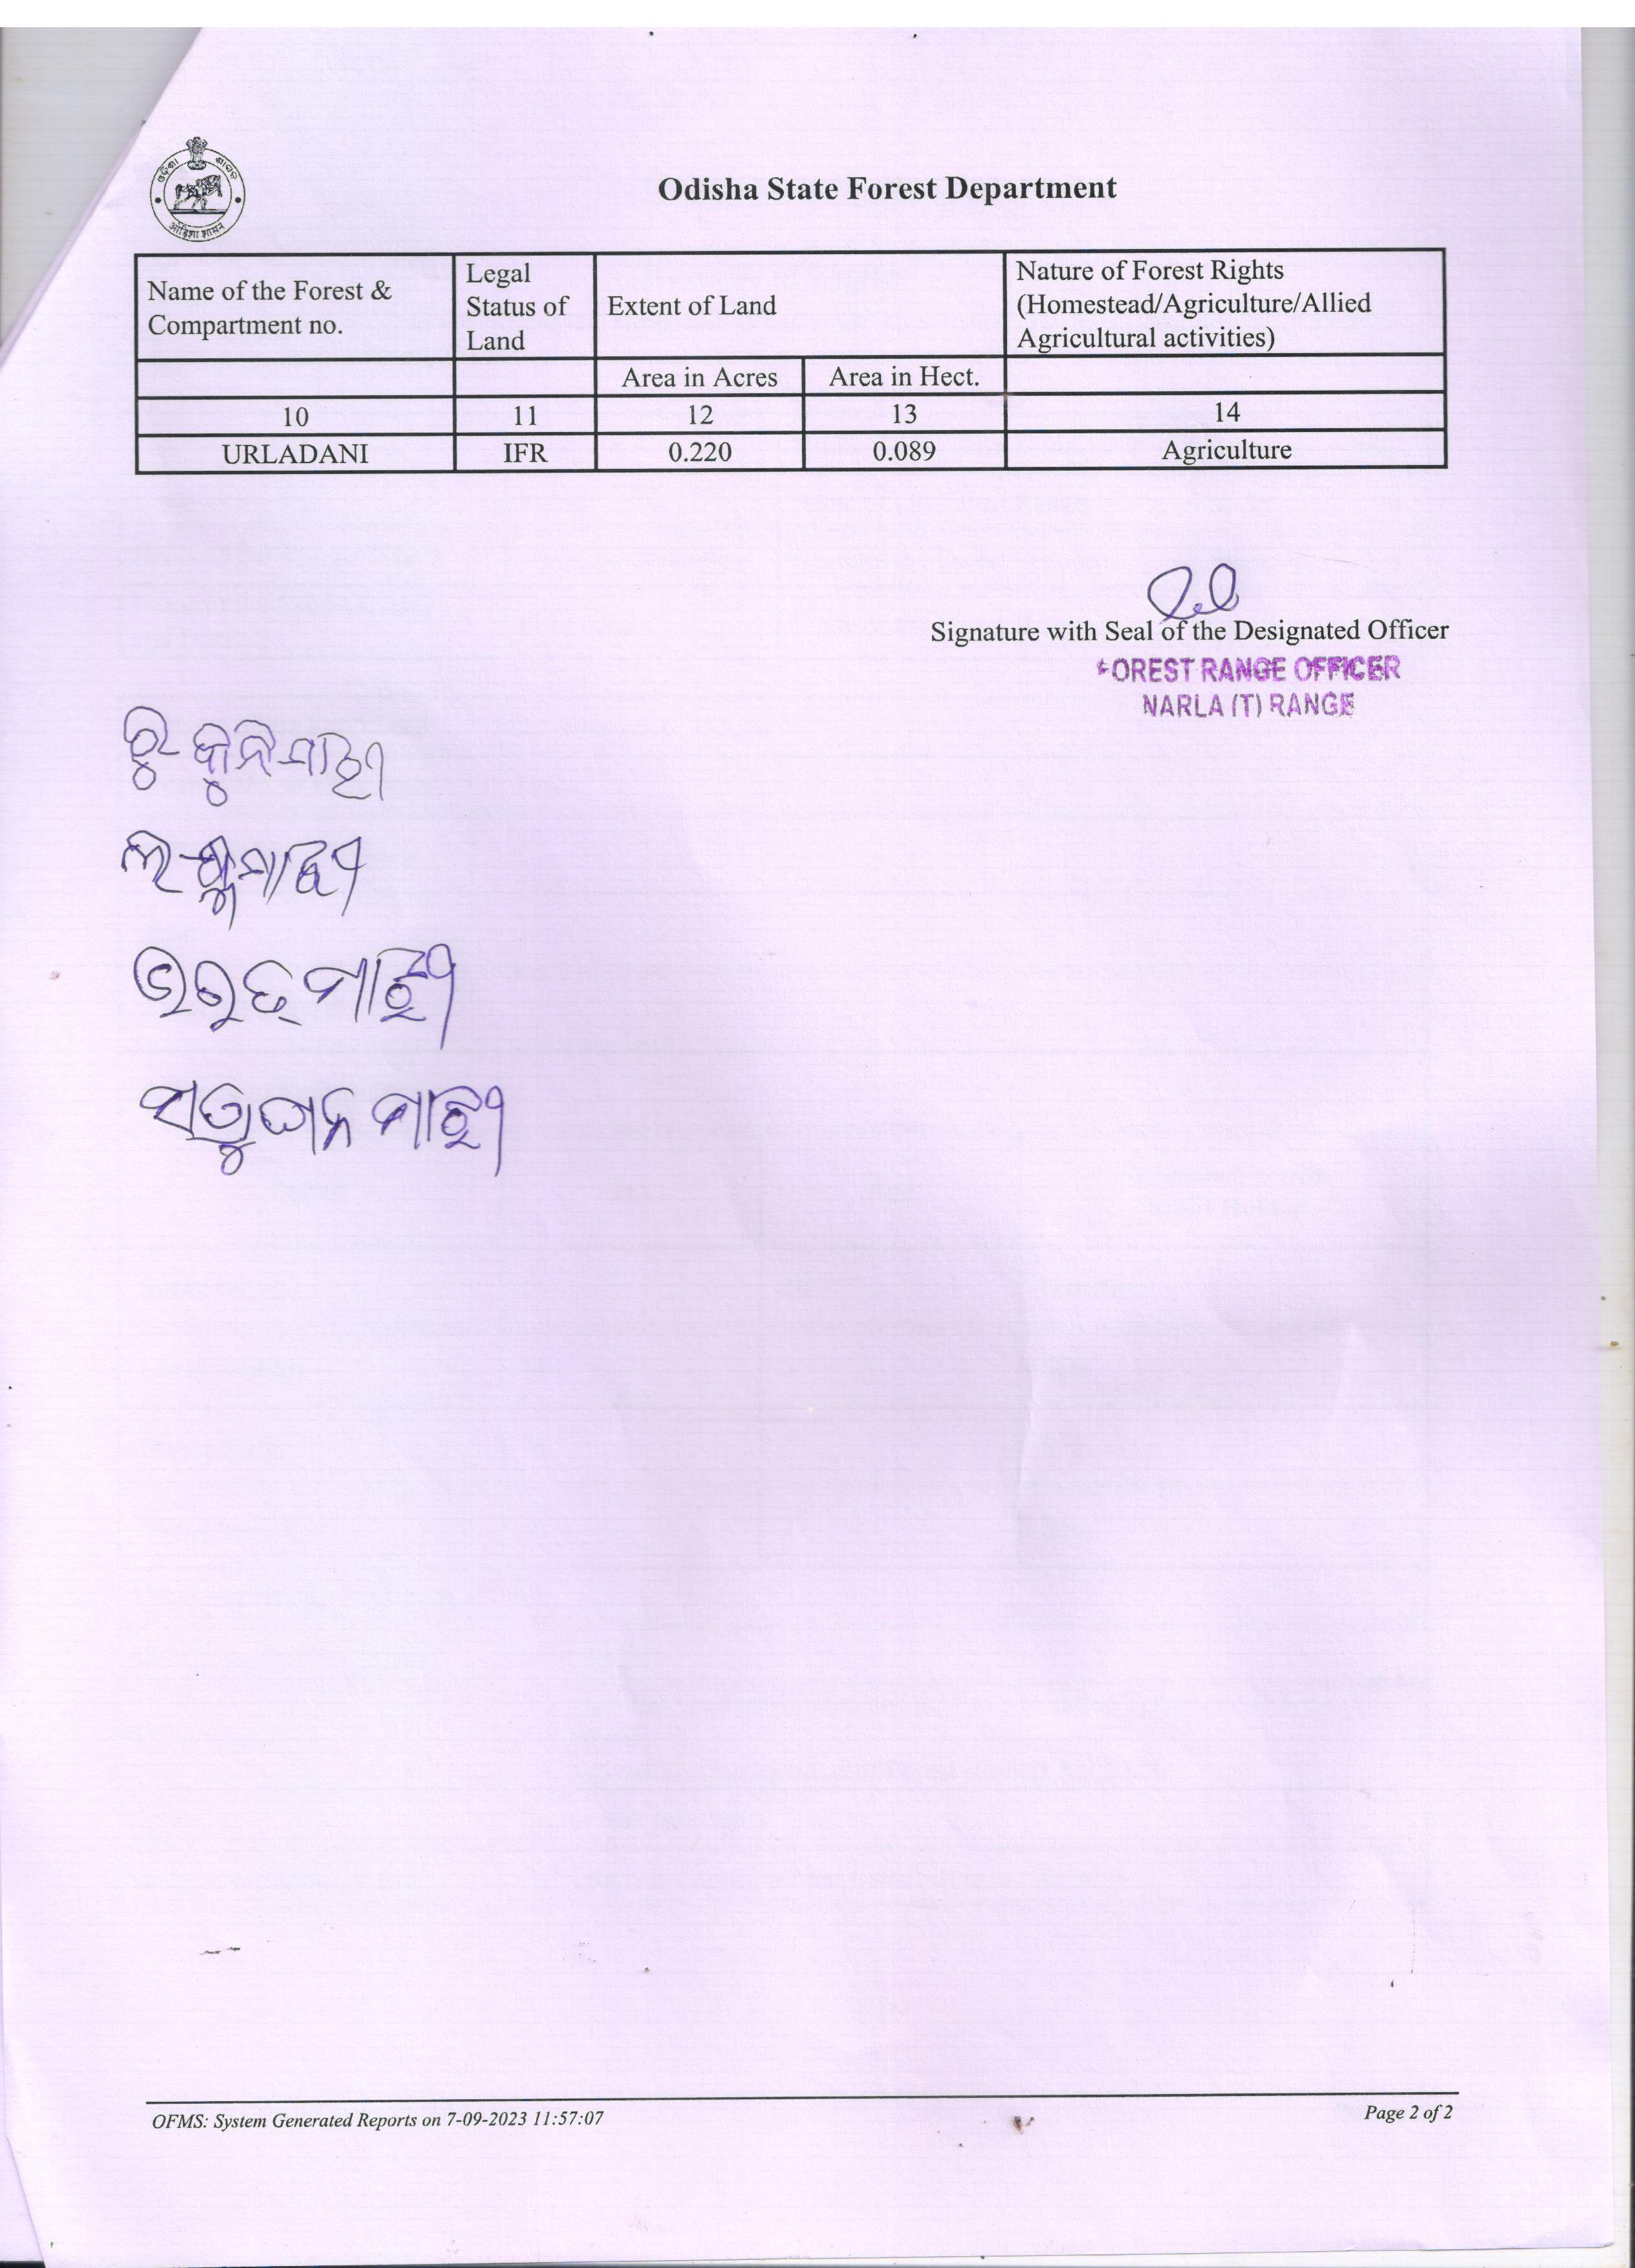 Odisha State Forest Department
ଓଡ଼ିଶା ଶାସନ
ओड़िशा शासन
Name of the Forest & Compartment no.
Legal Status of Land
Extent of Land
Nature of Forest Rights (Homestead/Agriculture/Allied Agricultural activities)
Area in Acres Area in Hect.
10 11 12 13 14
URLADANI IFR 0.220 0.089 Agriculture
Signature with Seal of the Designated Officer
FOREST RANGE OFFICER
NARLA (T) RANGE
ମାଝୀ
ମାଝୀ
ଭରତ ମାଝୀ
ମାଝୀ
OFMS: System Generated Reports on 7-09-2023 11:57:07
Page 2 of 2